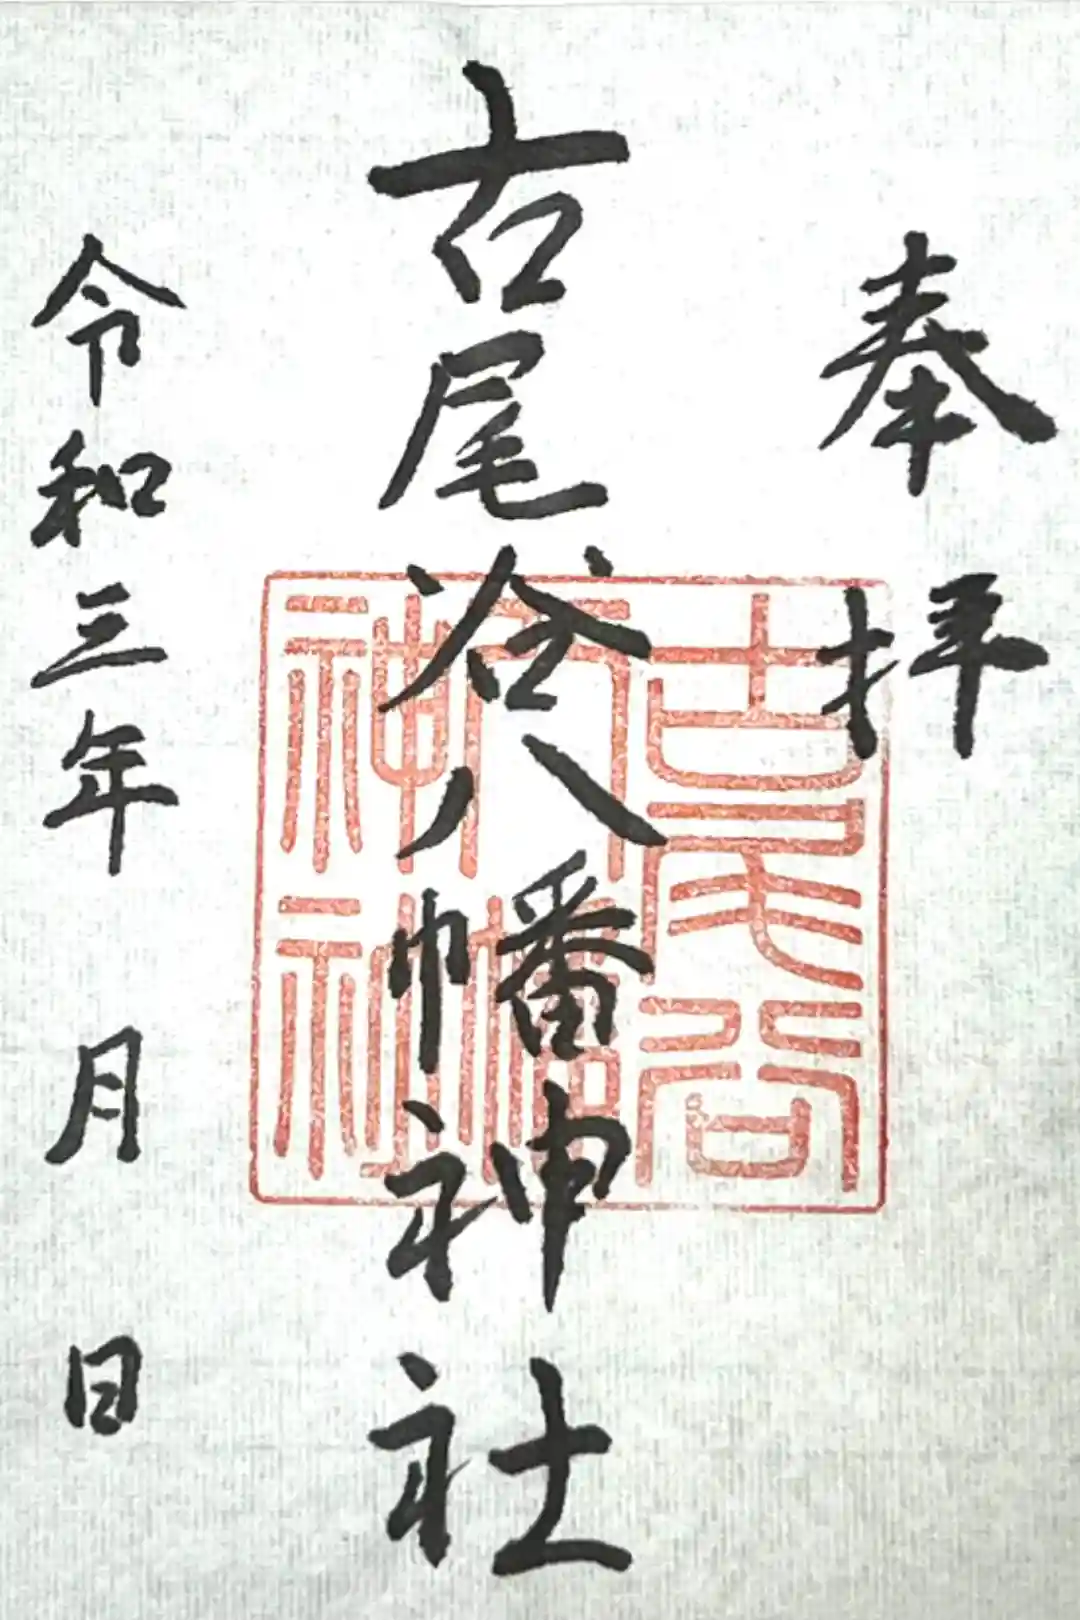 奉拝
古尾谷八幡神社
令和三年 月 日
古尾谷
八幡
神社